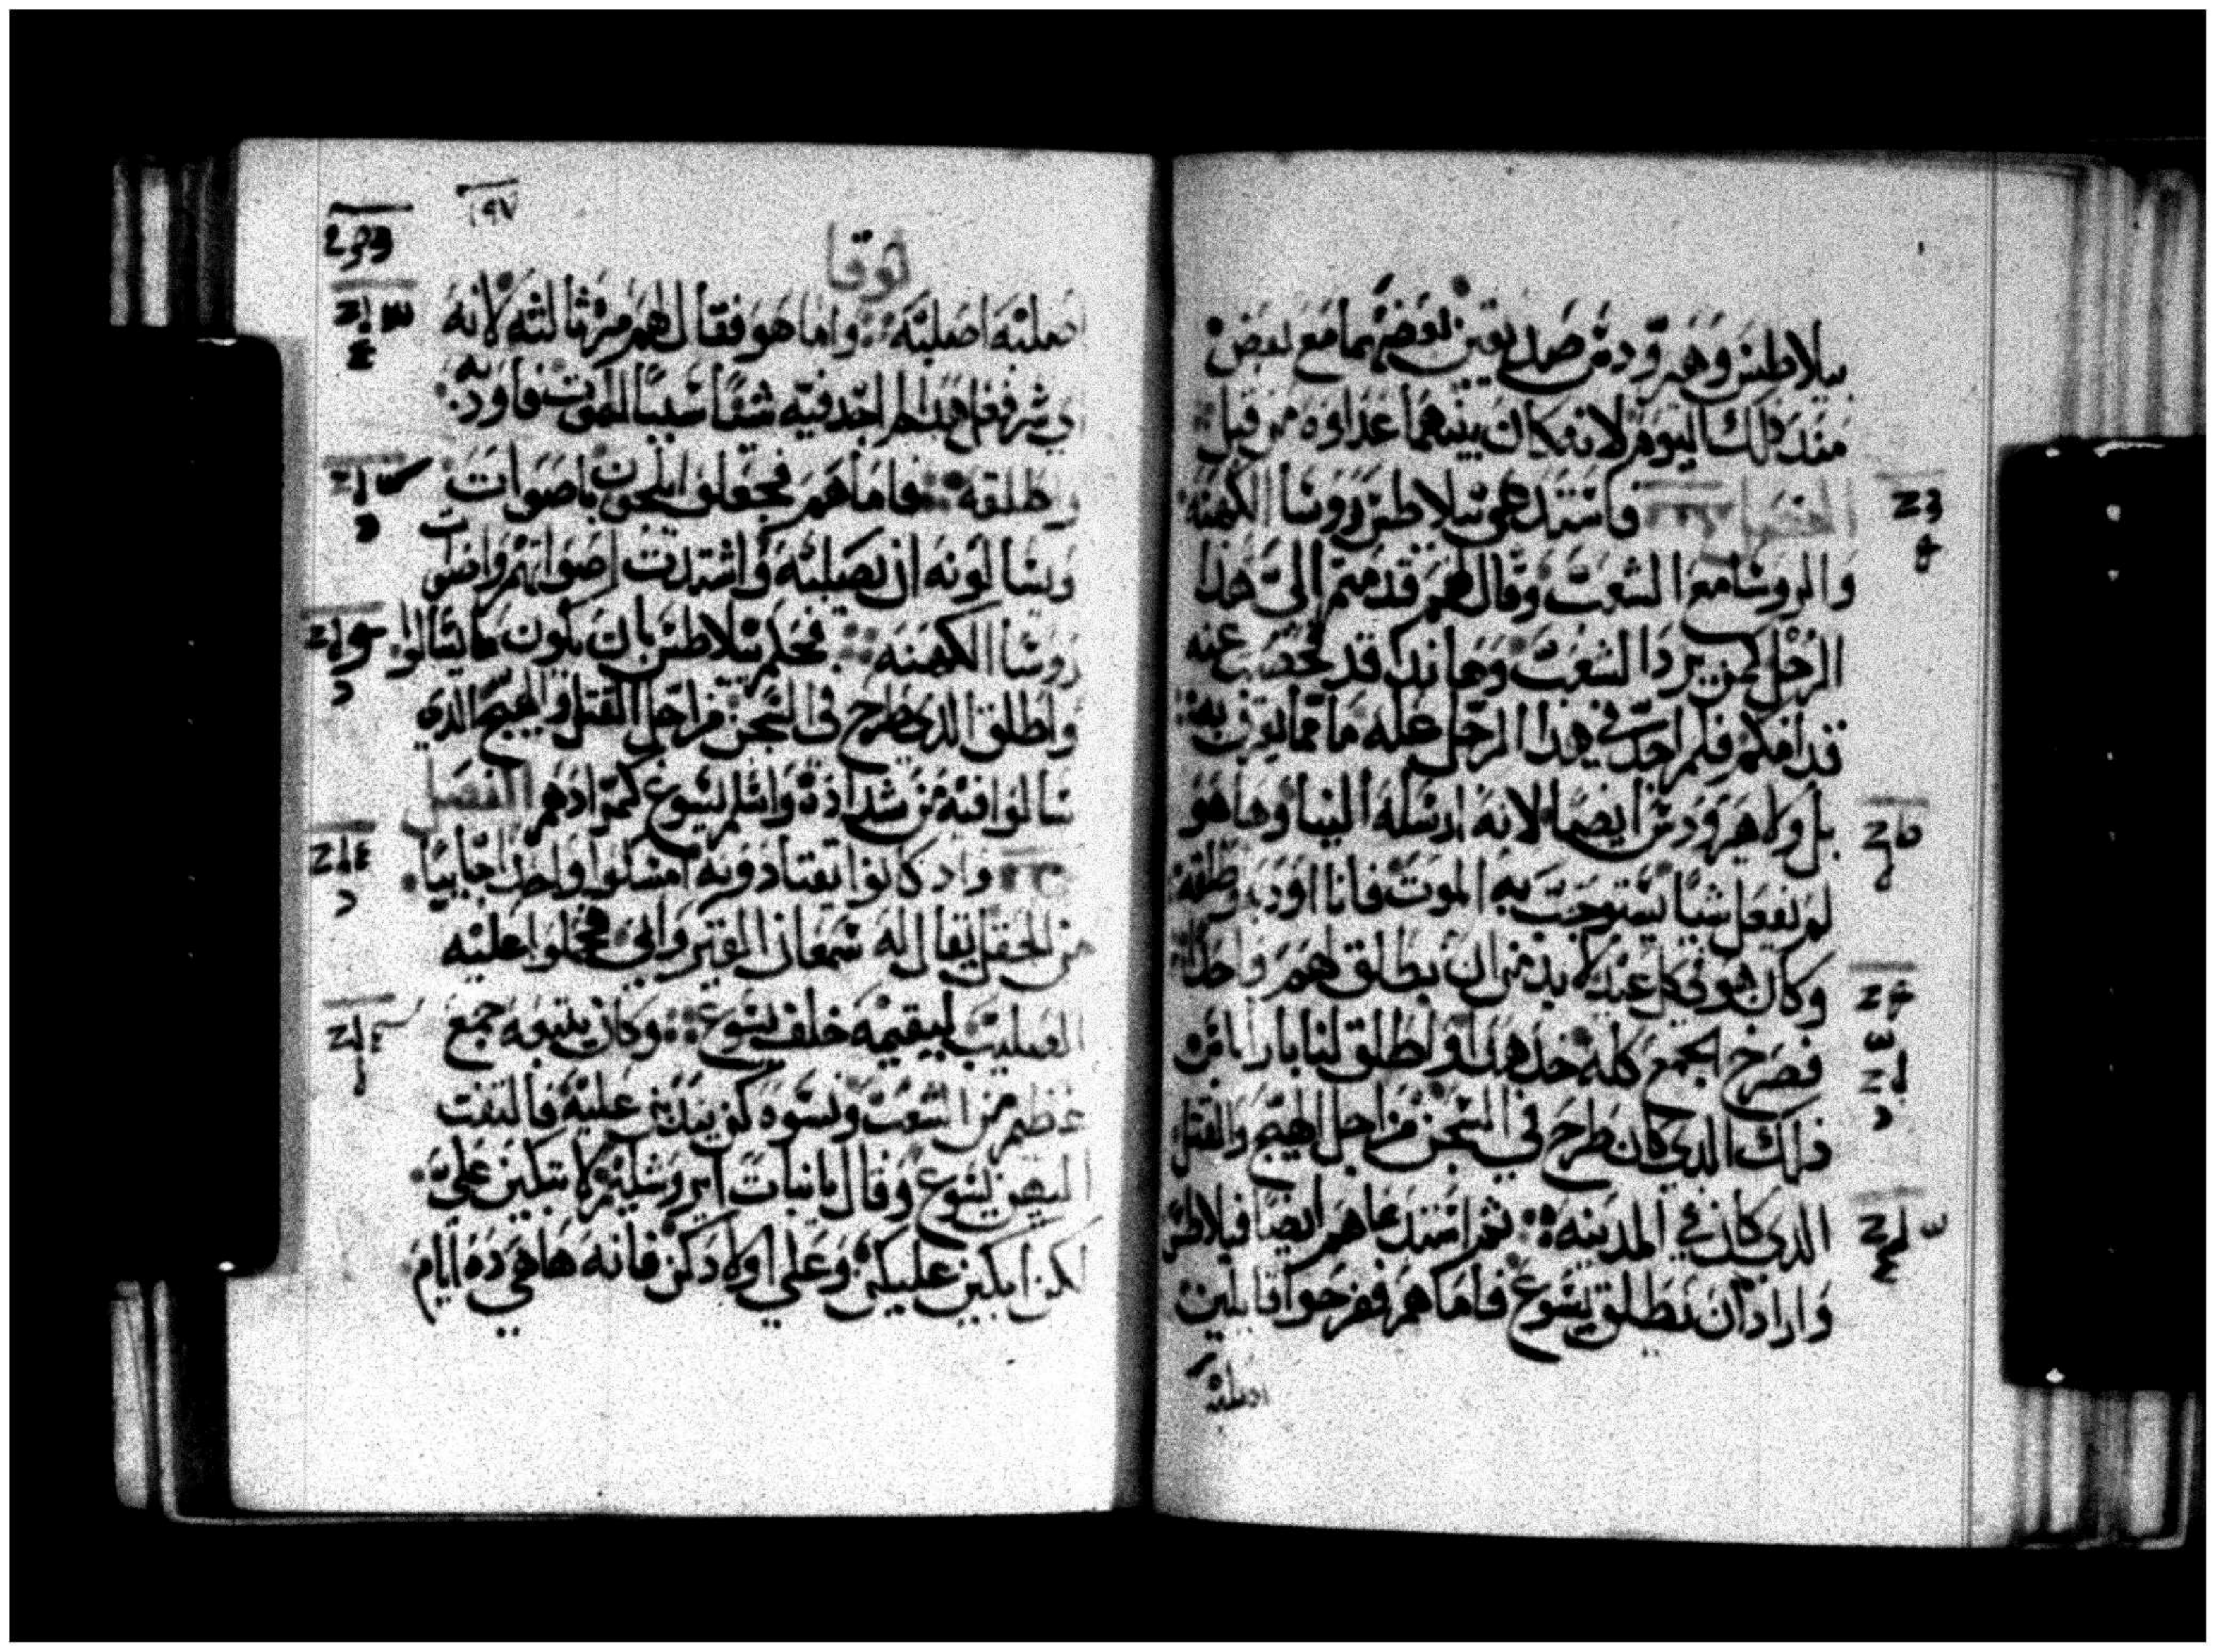 بيلاطس وهيرودس صديقين بعضهما مع بعض
منذ ذلك اليوم لانه كان بينهما عداوه من قبل
الفصل فاستدعى بيلاطس روسا الكهنه
والروسا مع الشعب وقال لهم قدمتم الي هذا
الرجل كمن يرد الشعب وها ندا قد فحصت عنه
قدامكم فلم اجد في هذا الرجل عله ما مما تقرف به
بل ولا هيرودس ايضا لانه ارسله الينا وها هو
لم يفعل شيا يستوجب به الموت فانا اودبه واطلقه
وكان في كل عيد لا بد من ان يطلق لهم واحدا
فصرخ الجمع كله خذ هذا واطلق لنا بارابان
ذلك الذي كان طرح في السجن من اجل الهيج والقتل
الذي كان في المدينه ثم استدعاهم ايضا فيلاطس
واراد ان يطلق يسوع فاما هم فصرخوا قايلين
اصلبه
لوقا
٩٧
اصلبه اصلبه واما هو فقال لهم مرة ثالثه لانه
اي شر فعل هذا لم اجد فيه شيا سببا للموت فاودبه
واطلقه فاما هم فجعلوا يلجون باصوات
ويسالونه ان يصلبه واشتدت اصواتهم واصوات
روسا الكهنه فحكم بيلاطس بان يكون ما سالوا
واطلق الذي طرح في السجن من اجل القتل والهيج الذي
سالوا فيه من شدادة واسلم يسوع كمرادهم الفصل
واذ كانوا يقتادونه امسكوا واحدا جاييا
من الحقل يقال له شمعان القيرواني فحملوا عليه
الصليب ليقيمه خلف يسوع وكان يتبعه جمع
عظيم من الشعب ونسوه كن يندبن عليه فالتفت
اليهن يسوع وقال يا بنات ايروشليم لا تبكين علي
لكن ابكين عليكن وعلى اولادكن فانه ها هي ده ايام